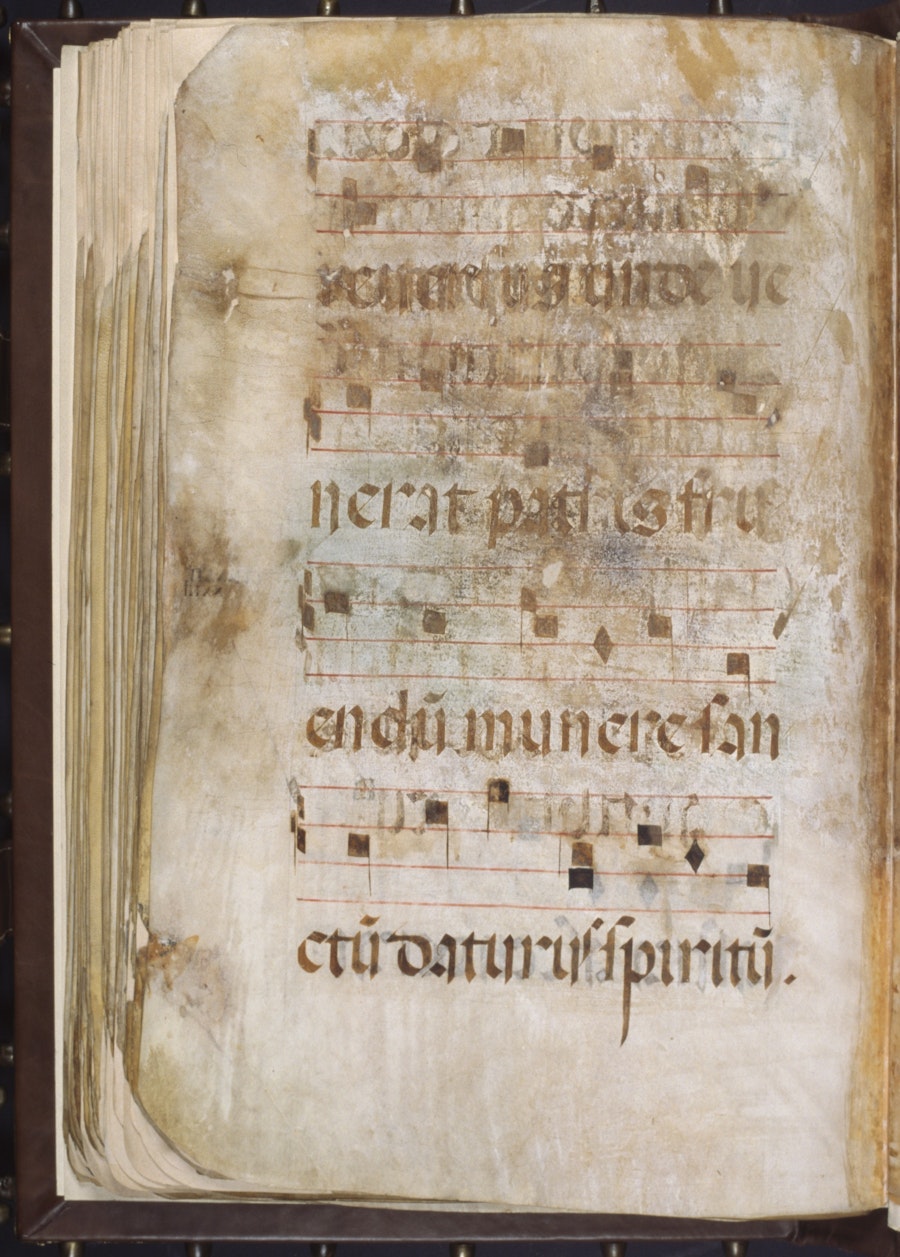 reuersus unde ue
nerat patris fru
endū munere san
ctū daturus spiritū.